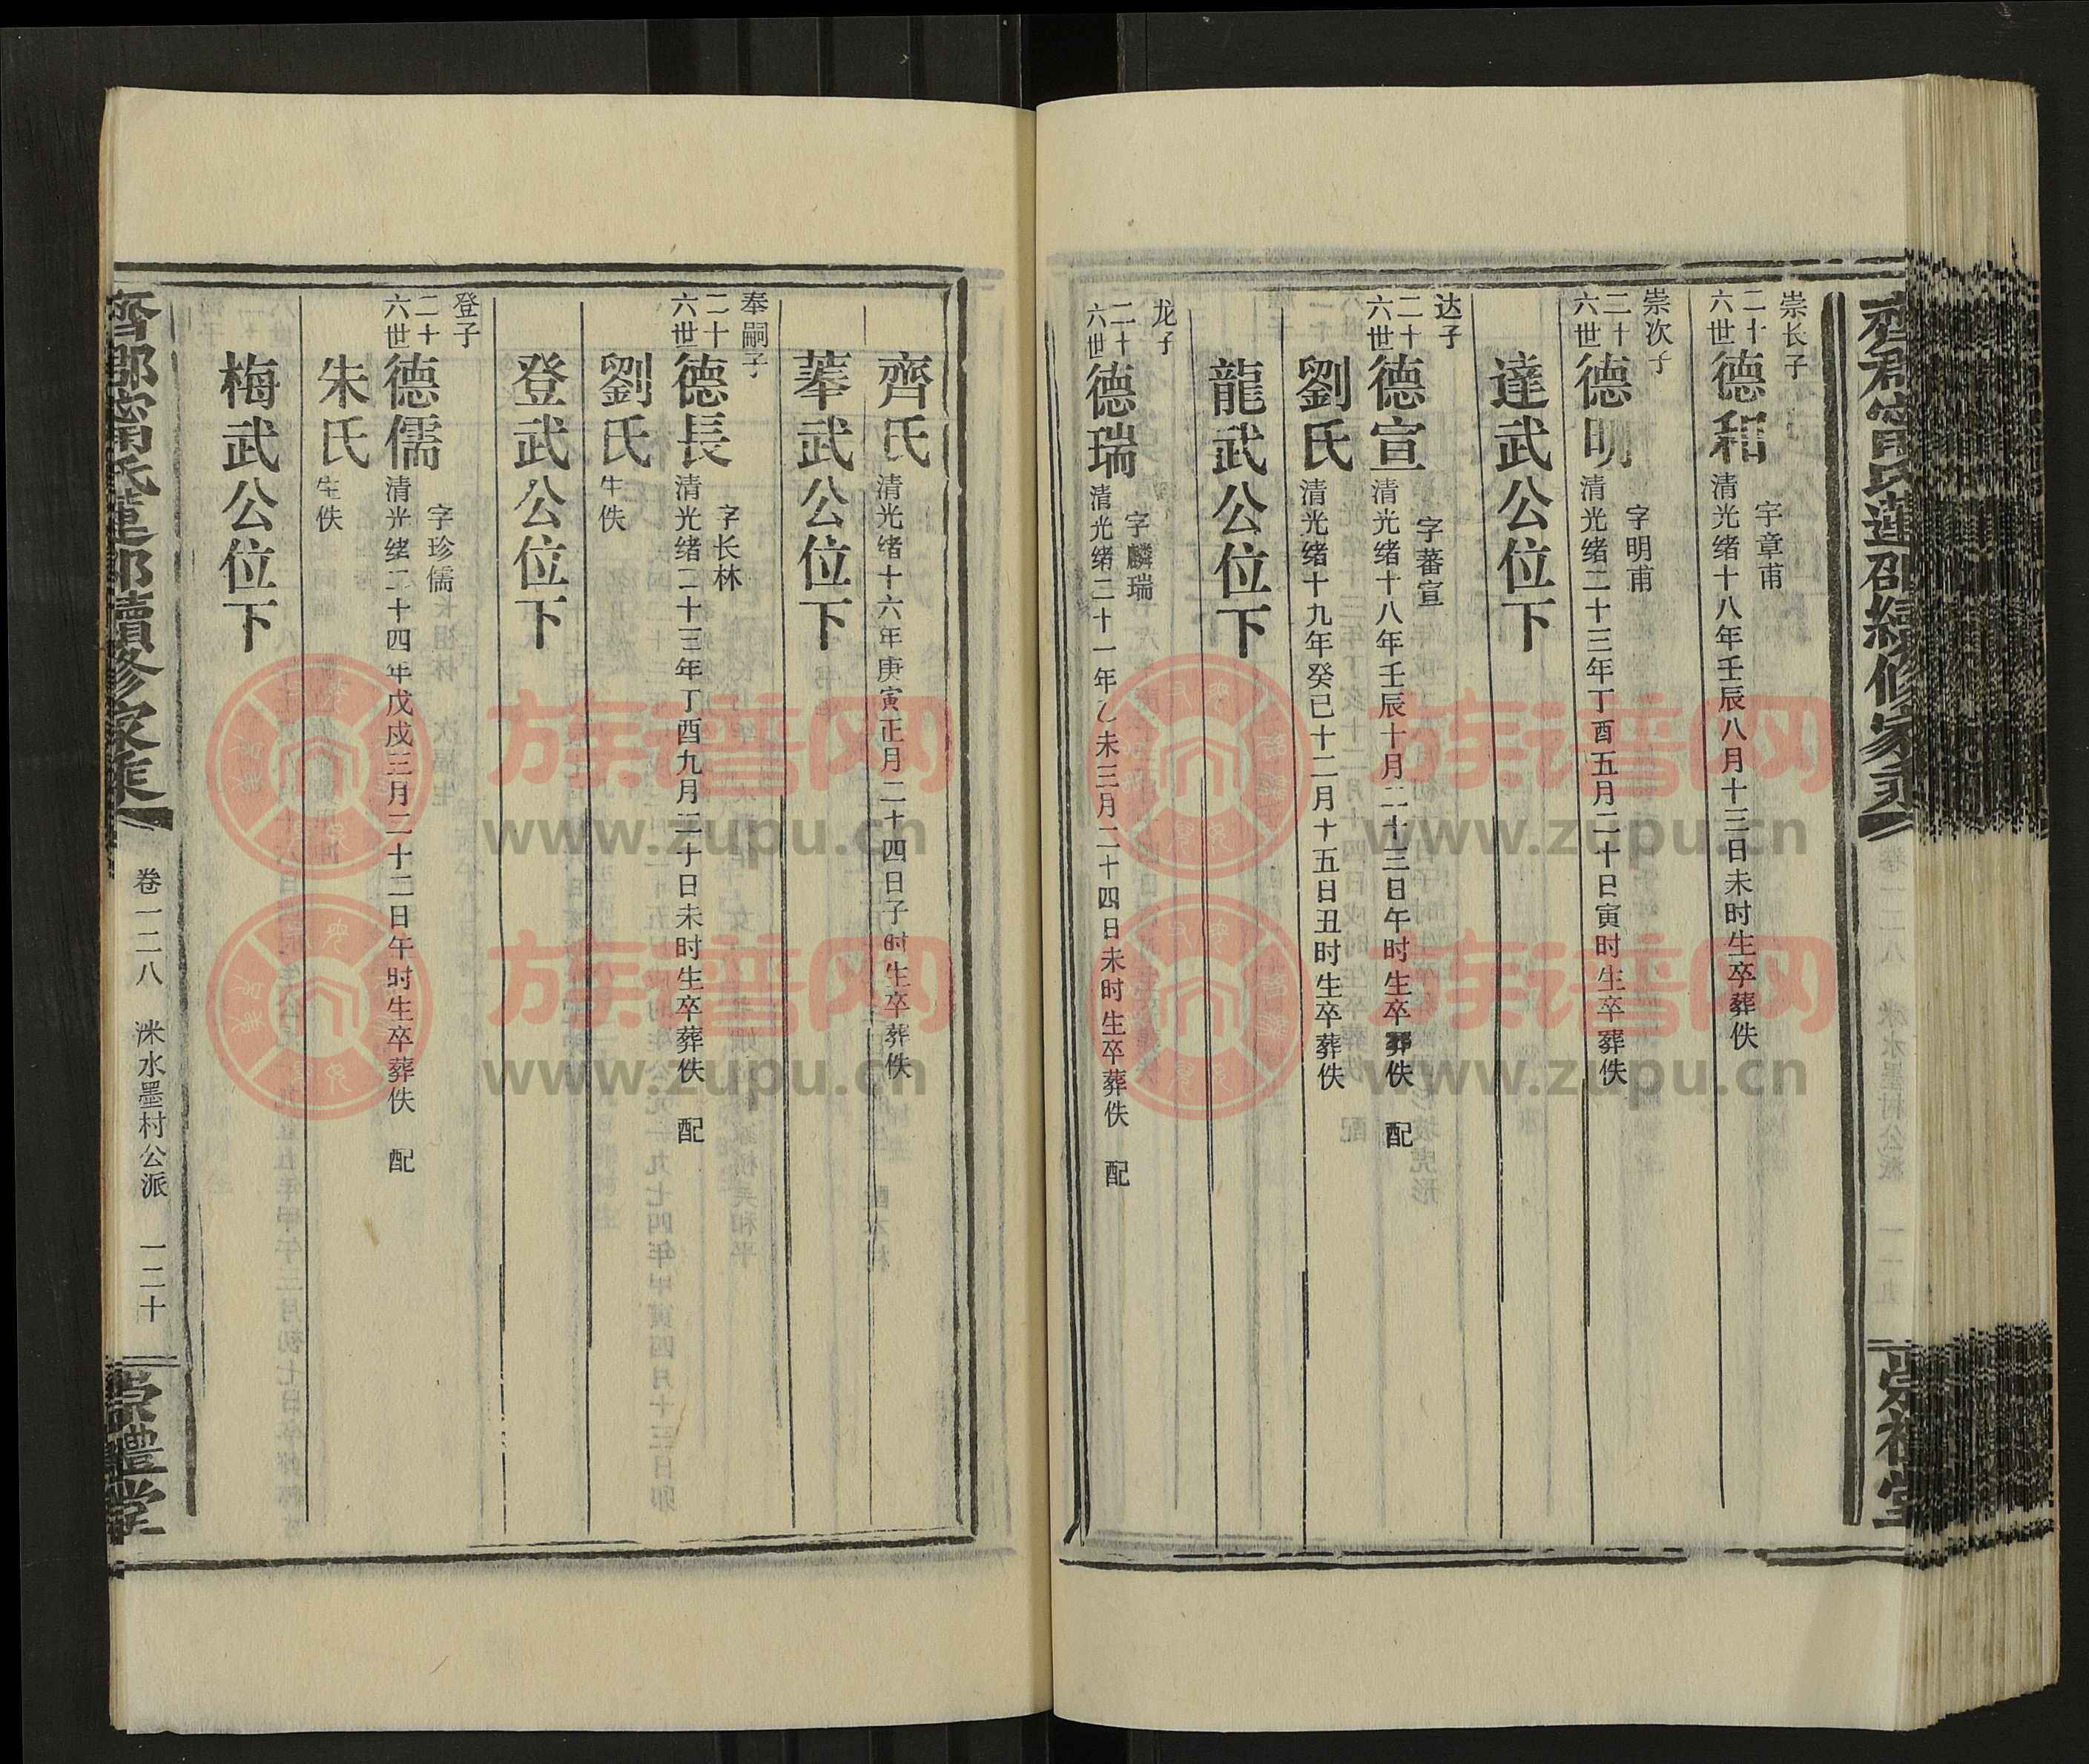 齊郡甯氏蓮邵續修家乘
崇禮堂
崇长子
二十六世
德和
字章甫
清光绪十八年壬辰八月十三日未时生卒葬佚
崇次子
二十六世
德明
字明甫
清光绪二十三年丁酉五月二十日寅时生卒葬佚
達武公位下
达子
二十六世
德宣
字蕃宣
清光绪十八年壬辰十月二十三日午时生卒葬佚 配
劉氏
清光绪十九年癸巳十二月十五日丑时生卒葬佚
龍武公位下
龙子
二十六世
德瑞
字麟瑞
清光绪二十一年乙未三月二十四日未时生卒葬佚 配
齊氏
清光绪十六年庚寅正月二十四日子时生卒葬佚
菶武公位下
奉嗣子
二十六世
德長
字长林
清光绪二十三年丁酉九月二十日未时生卒葬佚 配
劉氏
生佚
登武公位下
登子
二十六世
德儒
字珍儒
清光绪二十四年戊戌三月二十二日午时生卒葬佚 配
朱氏
生佚
梅武公位下
齊郡甯氏蓮邵續修家乘
卷一二八 洣水墨村公派 一二十
崇禮堂
族谱网
www.zupu.cn
族谱网
www.zupu.cn
族谱网
www.zupu.cn
族谱网
www.zupu.cn